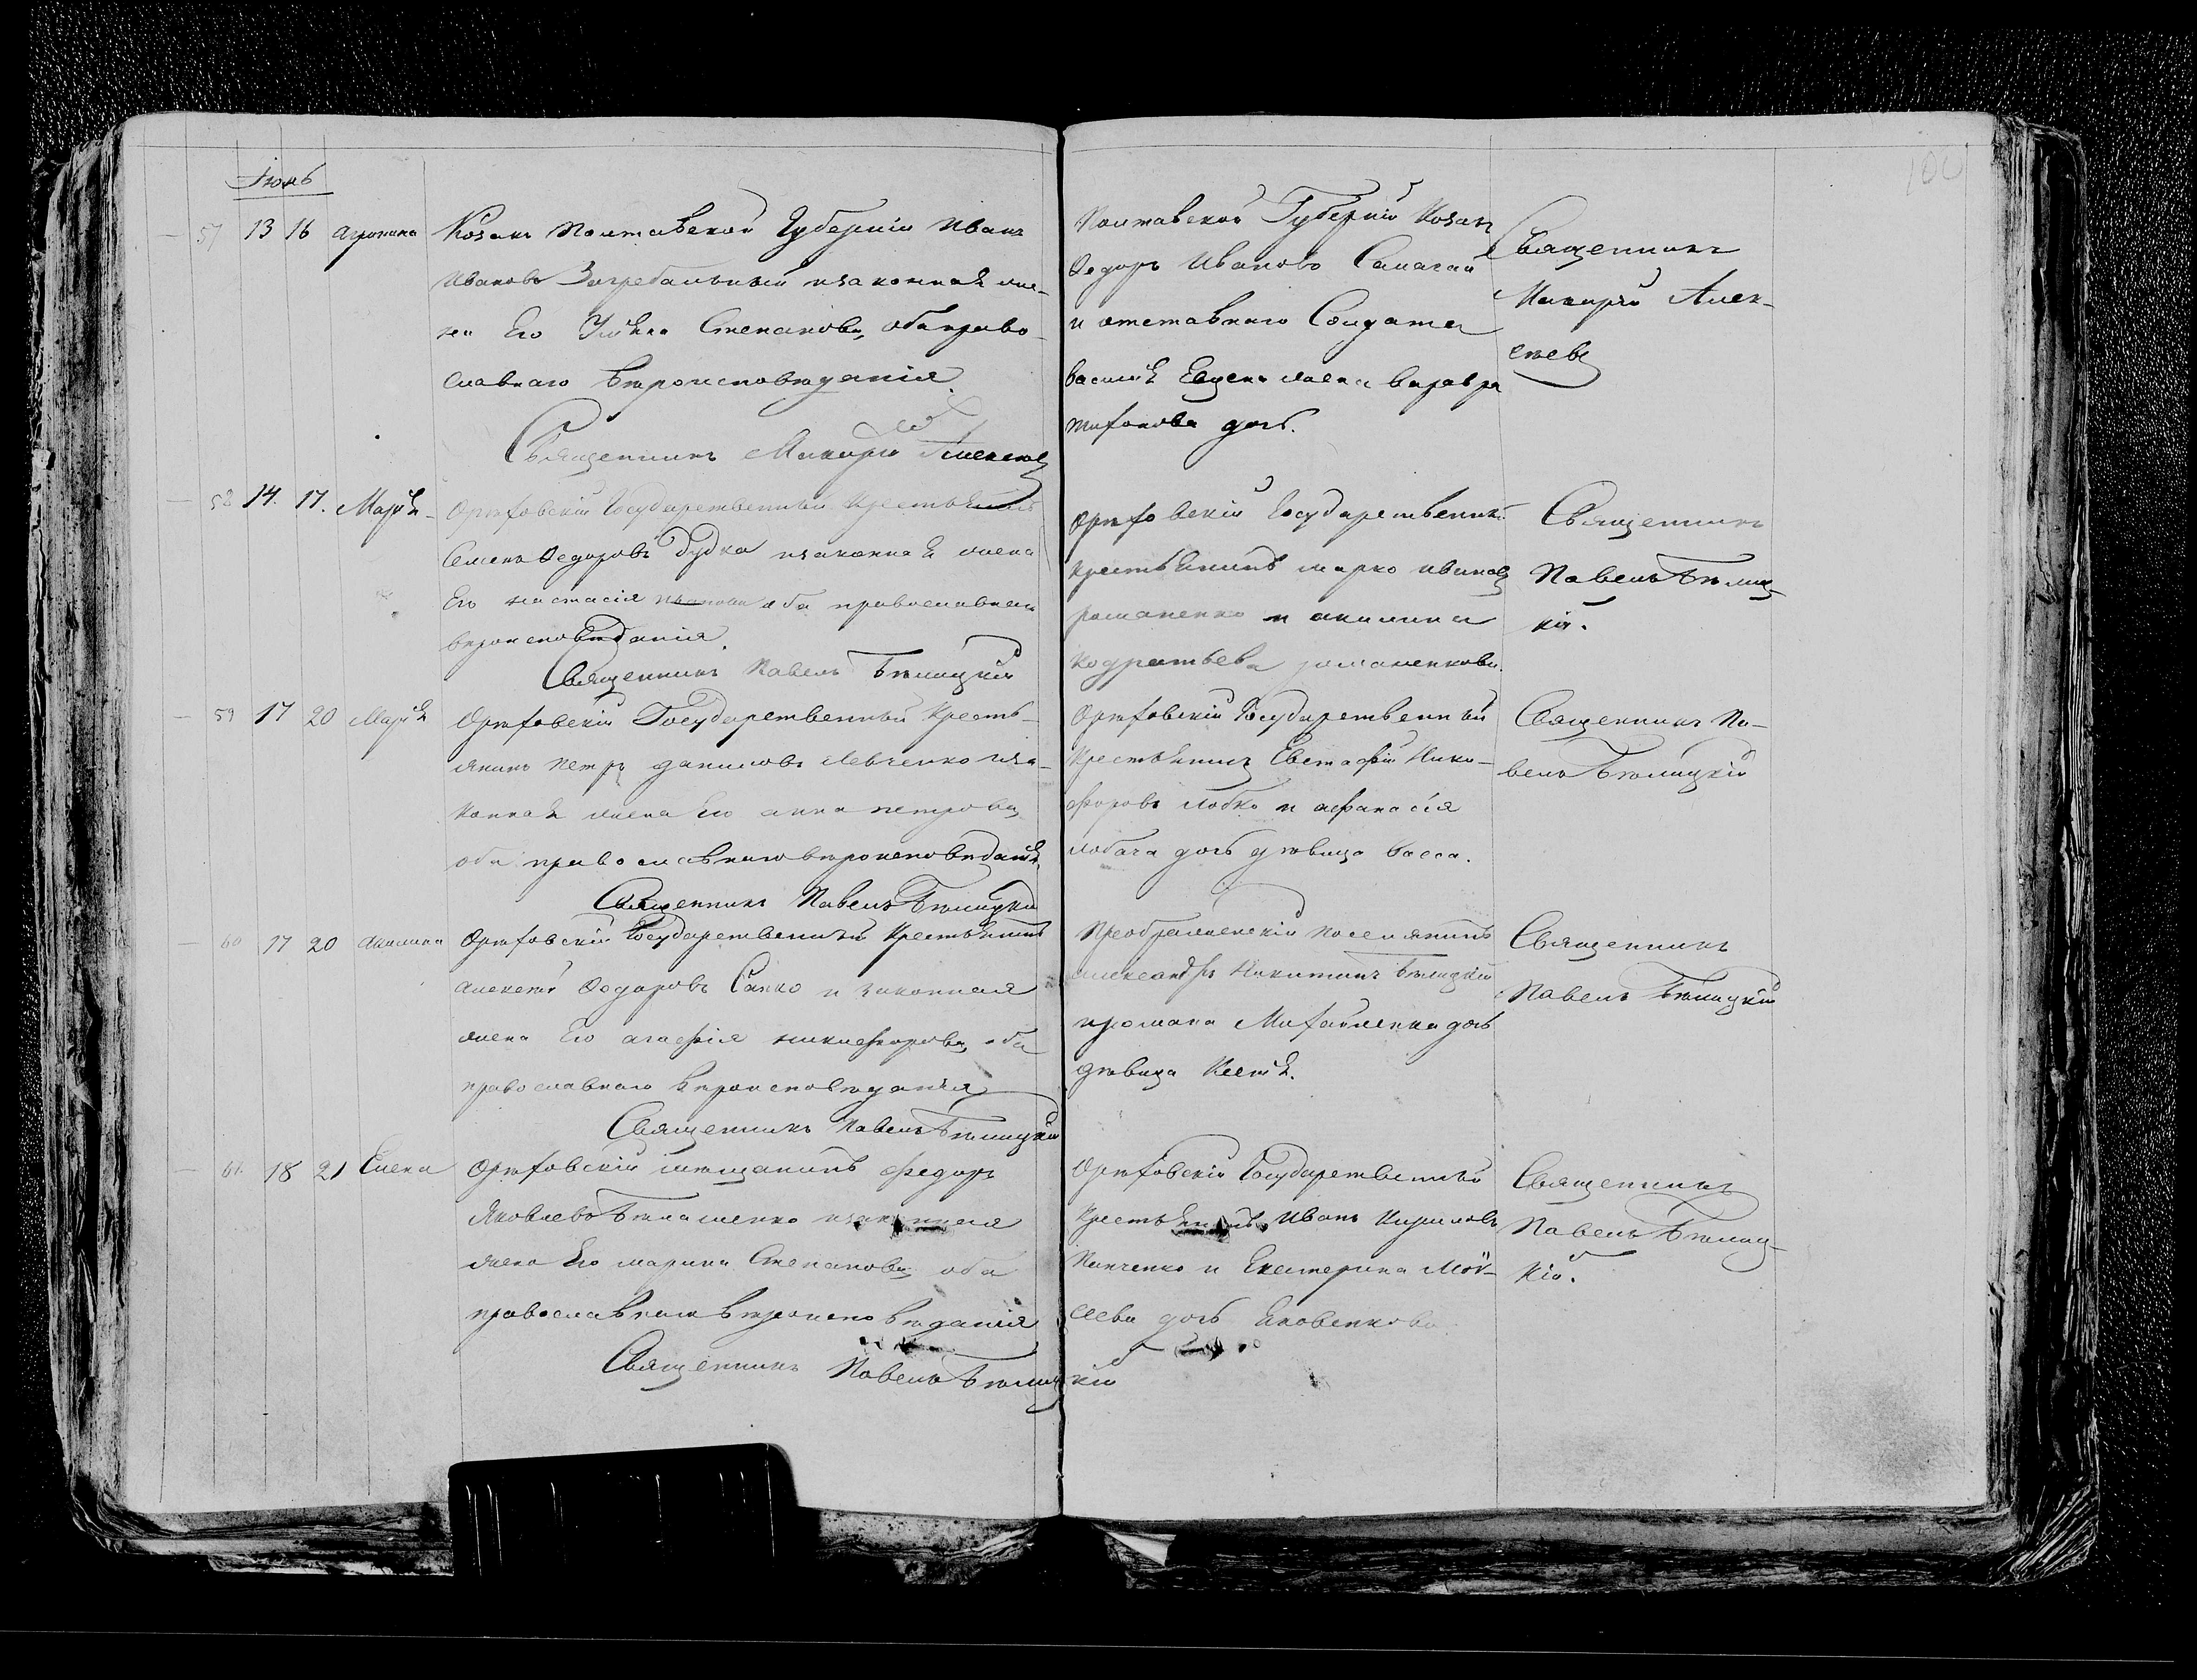 Июнь
100
57 13 16 Агрипина
Козакъ Полтавской Губерніи Иванъ
Ивановъ Загребальный изаконная же-
на Его Уліяна Степанова, оба право-
славнаго вѣроисповѣданія.
Священникъ Макарій Алексѣевъ
Полтавской Губерніи Козакъ
Федоръ Ивановъ Самагай
и отставнаго Солдата
Василія жена Варвара
Тифонова дочь.
Священникъ
Макарій Алек-
сѣевъ
58 14. 17. Марія
Орѣховскій Государственный Крестьянинъ
Семенъ Федоровъ Дудка изаконная жена
Его Настасія оба православнаго
вѣроисповѣданія.
Священникъ Павелъ Бѣлицкій
Орѣховскій Государственный
Крестьянинъ Марко Ивановъ
Романенко и Акилина
Кодратьева Романенкова.
Священникъ
Павелъ Бѣлиц-
кій.
59 17 20 Марія
Орѣховскій Государственный Кресть-
янинъ Петръ Даниловъ Левченко иза-
конная жена Его Анна Петрова,
оба православнаго вѣроисповѣданія.
Священникъ Павелъ Бѣлицкій
Орѣховскій Государственный
Крестьянинъ Евстафій Ники-
форовъ Лобко и Афанасія
Лобача дочь дѣвица Васса.
Священникъ Па-
велъ Бѣлицкій
60 17 20 Акилина
Орѣховскій Государственный Крестьянинъ
Алексѣй Федоровъ Сапко и законная
жена Его Агафія Никифорова, оба
православнаго вѣроисповѣданія
Священникъ Павелъ Бѣлицкій
Преображенскій поселянинъ
Александръ Никитинъ Бѣлицкій
ирошана Михайленка дочь
дѣвица Ксенія.
Священникъ
Павелъ Бѣлицкій
61. 18 21 Елена
Орѣховскій мѣщанинъ Федоръ
Яковлевъ изаконная
жена Его Марина Степанова, оба
православнаго вѣроисповѣданія
Священникъ Павелъ Бѣлицкій
Орѣховскій Государственный
Крестьянинъ Иванъ Кириловъ
Панченко и Екатерина Мой-
сеева дочь Яковенкова
Священникъ
Павелъ Бѣлиц-
кій.